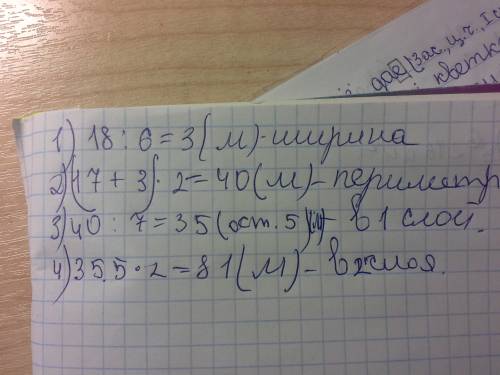 дае (Зас, ц.ч., I с
кветк
1) 18 : 6 = 3 (м) - ширина
2) (17 + 3) · 2 = 40 (м) - периметр
3) 40 : 7 = 35 (ост. 5) (м) - в 1 слой.
4) 35,5 · 2 = 81 (м) - в 2 слоя.